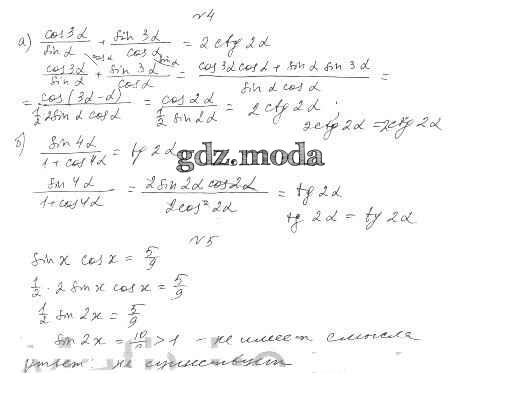 №4
а) cos3α/sinα + sin 3α/cosα = 2 ctg 2α
cos3α/sinα + sin 3α/cosα = (cos3α cosα + sinα sin 3α)/(sinα cosα) =
= cos(3α-α)/(1/2 2sinα cosα) = cos2α/(1/2 sin2α) = 2 ctg 2α ;
2ctg 2α = 2ctg 2α
б) sin4α/(1+cos4α) = tg 2α
gdz.moda
sin 4α/(1+cos4α) = 2sin2α cos2α/2cos² 2α = tg 2α
tg 2α = tg 2α
№5
sin x cos x = 5/9
1/2 · 2 sin x cos x = 5/9
1/2 sin 2x = 5/9
sin 2x = 10/9 > 1 - не имеет смысла
Ответ: не существует